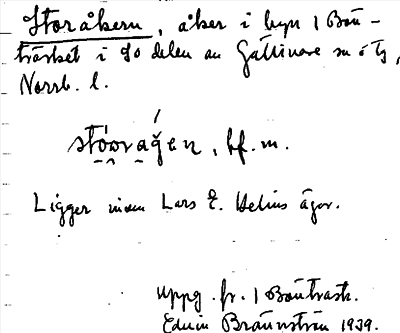 Storåkern, åker i byn 1 Bön-
träsket i So delen av Gällivare sn o tg,
Norrb. l.
stówragen, bf. m.
Ligger inom Lars E. Helins ägor.
Uppg. fr. 1 Böuträsk.
Edvin Brännström 1939.